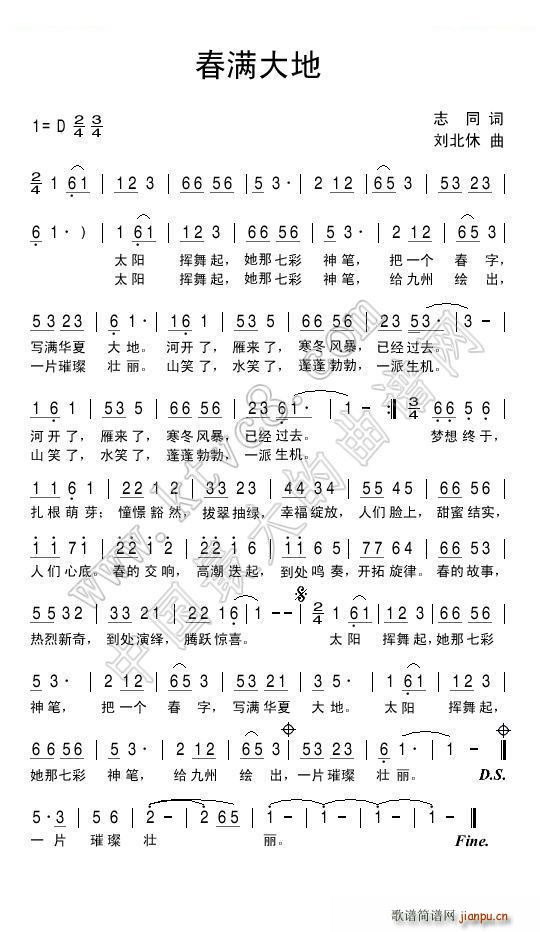 春满大地
志 同 词
1= D 2/4 3/4
刘北休 曲
2/4 1 61 | 12 3 | 66 56 | 5 3· | 2 12 | 653 | 53 23 |
6 1·) | 1 61 | 12 3 | 66 56 | 5 3· | 2 12 | 65 3 |
太阳 挥舞起，她那七彩 神笔， 把一个 春字，
太阳 挥舞起，她那七彩 神笔， 给九州 绘出，
53 23 | 6 1· | 16 1 | 53 5 | 66 56 | 22 53· | 3 – |
写满华夏 大地。 河开了， 雁来了， 寒冬风暴， 已经过去。
一片璀璨 壮丽。 山笑了， 水笑了， 蓬蓬勃勃， 一派生机。
16 1 | 53 5 | 66 56 | 22 361· | 1 – :| 3/4 66 56 5 |
河开了， 雁来了， 寒冬风暴， 已经过去。 梦想终于，
山笑了， 水笑了， 蓬蓬勃勃， 一派生机。
11 61 | 22 12 | 33 23 | 44 34 | 55 45 | 66 56 |
扎根萌芽； 憧憬豁然， 拔翠抽绿， 幸福绽放， 人们脸上， 甜蜜结实，
11 71 | 22 12 | 11 65 | 77 64 | 66 56 |
人们心底。 春的交响， 高潮迭起， 到处鸣奏， 开拓旋律。 春的故事，
55 35 | 33 23 | 22 16 | 1 – | 2/4 1 61 | 12 3 | 66 56 |
热烈新奇， 到处演绎， 腾跃惊喜。 太阳 挥舞起，她那七彩
5 3· | 2 12 | 65 3 | 53 23 | 6 1· | 1 61 | 12 3 |
神笔， 把一个 春字， 写满华夏 大地。 太阳 挥舞起，
66 56 | 5 3· | 2 12 | 65 3 | 53 23 | 6 1· | 1 – ‖
她那七彩 神笔， 给九州 绘出，一片璀璨 壮丽。 D.S.
5·3 | 5 6 | 2 – | 2 65 | 1 – | 1 – | 1 – | 1 – ‖
一片 璀璨 壮 丽。 Fine.
www.ktvc8.com
歌谱简谱网
jianpu.cn